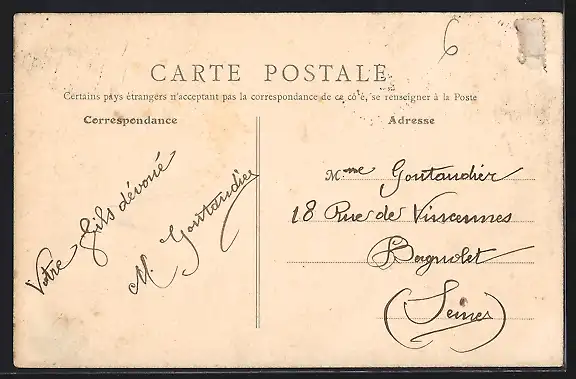 6
CARTE POSTALE
Certains pays étrangers n'acceptant pas la correspondance de ce côté, se renseigner à la Poste
Correspondance
Votre fils dévoué
M. Goutaudier
Adresse
Mme Goutaudier
18 Rue de Vincennes
Bagnolet
(Seine)